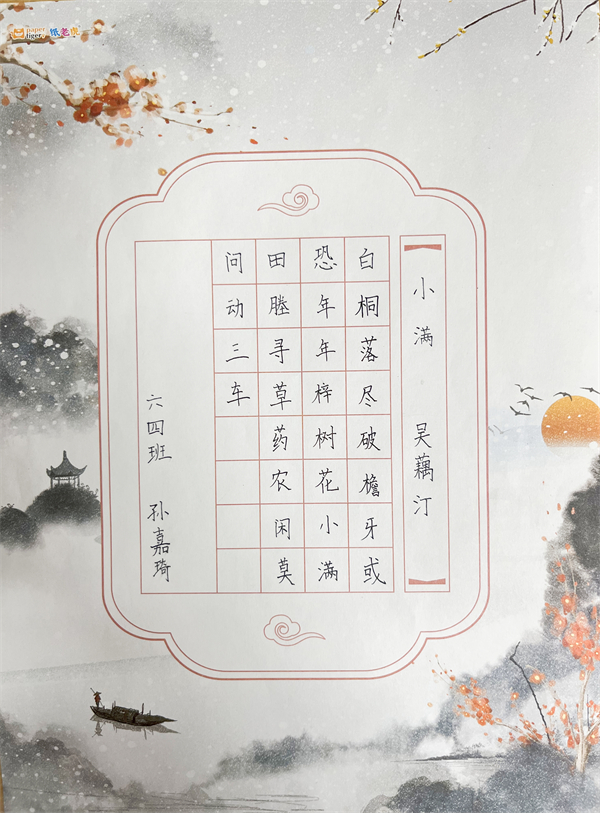 paper tiger 纸老虎
小满 吴藕汀
白桐落尽破檐牙或
恐年年梓树花小满
田塍寻草药农闲莫
问动三车
六四班 孙嘉琦